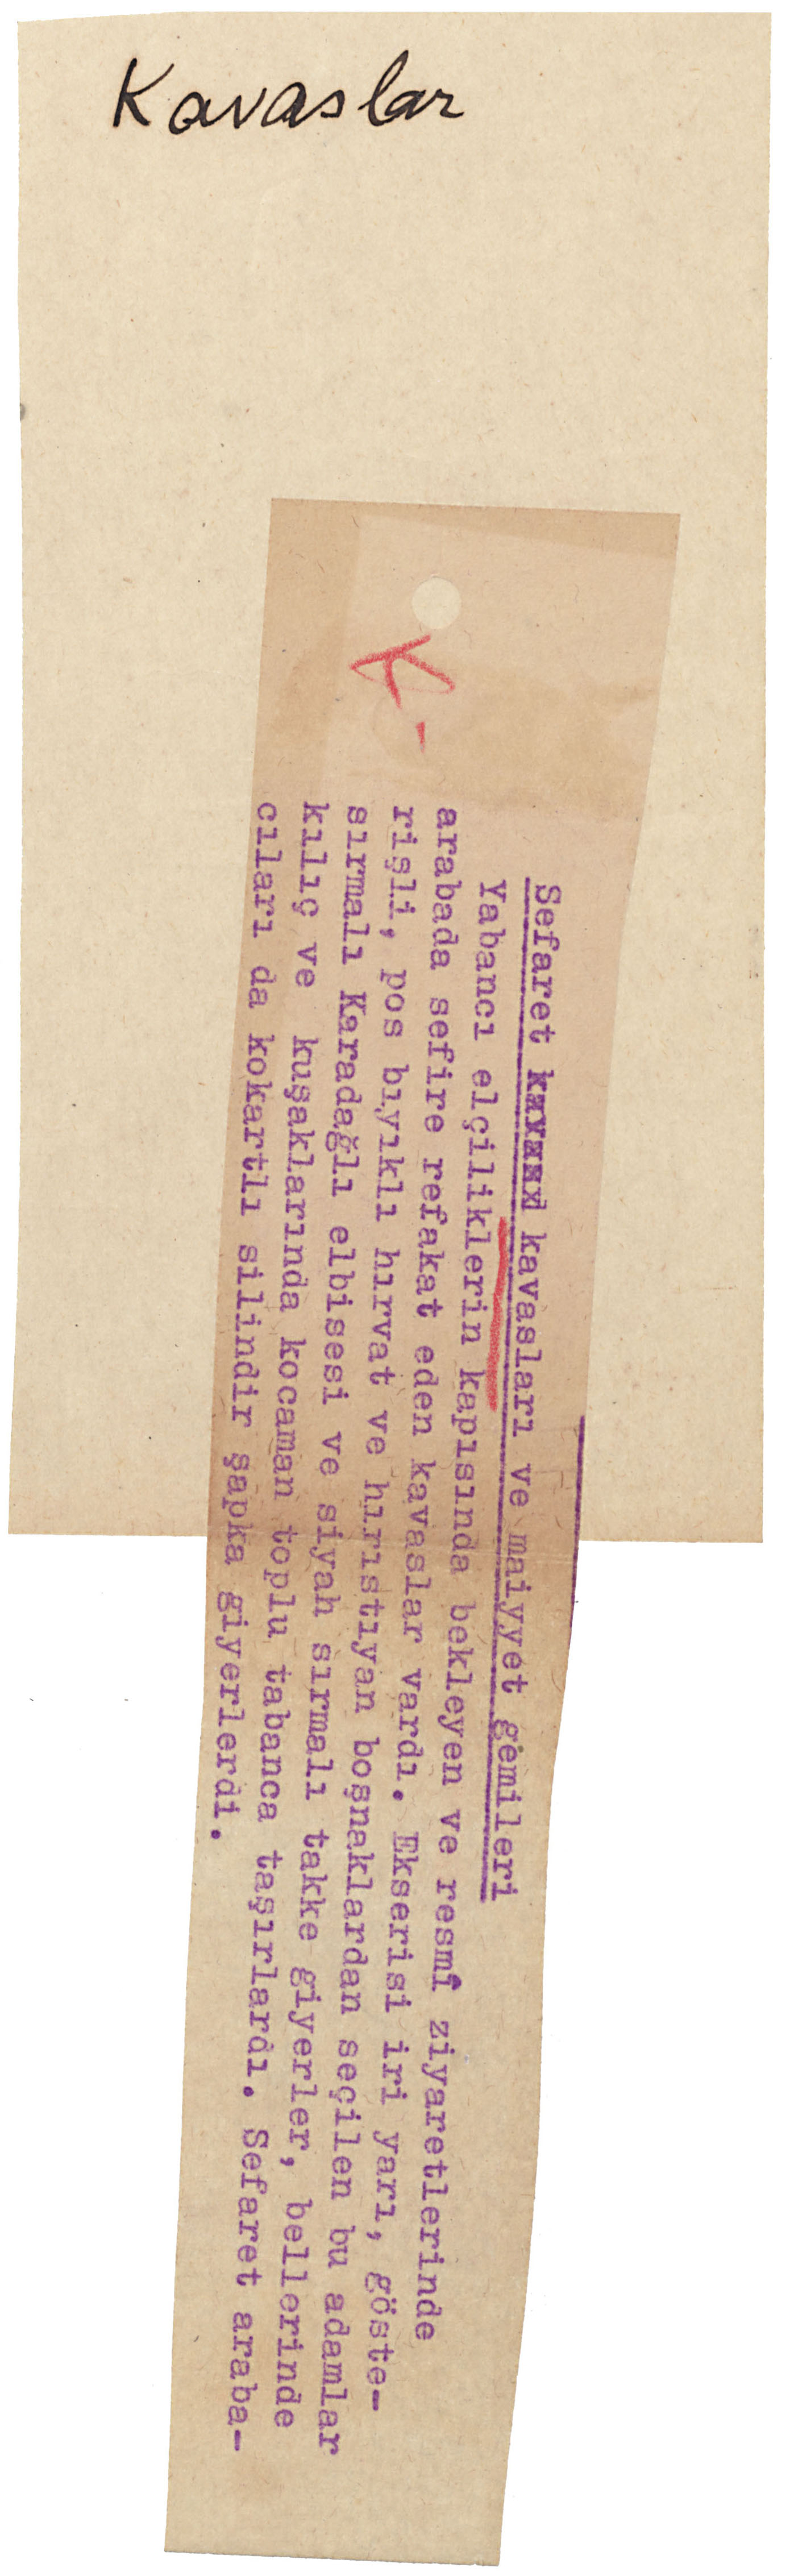 Kavaslar
K-
Sefaret kavasları ve maiyyet gemileri
Yabancı elçiliklerin kapısında bekleyen ve resmî ziyaretlerinde
arabada sefire refakat eden kavaslar vardı. Ekserisi iri yarı, göste-
rişli, pos bıyıklı hırvat ve hıristıyan boşnaklardan seçilen bu adamlar
sırmalı Karadağlı elbisesi ve siyah sırmalı takke giyerler, bellerinde
kılıç ve kuşaklarında kocaman toplu tabanca taşırlardı. Sefaret araba-
cıları da kokartlı silindir şapka giyerlerdi.